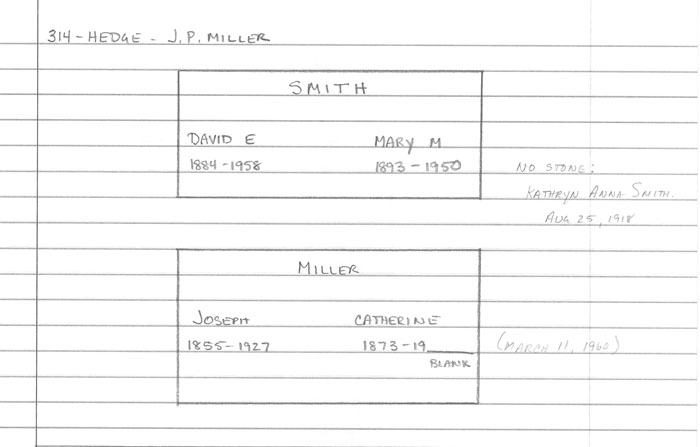 314 - HEDGE - J. P. MILLER
SMITH
DAVID E MARY M
1884 - 1958 1893 - 1950 NO STONE:
KATHRYN ANNA SMITH.
AUG 25, 1918
MILLER
JOSEPH CATHERINE
1855 - 1927 1873 - 19__ (MARCH 11, 1960)
BLANK